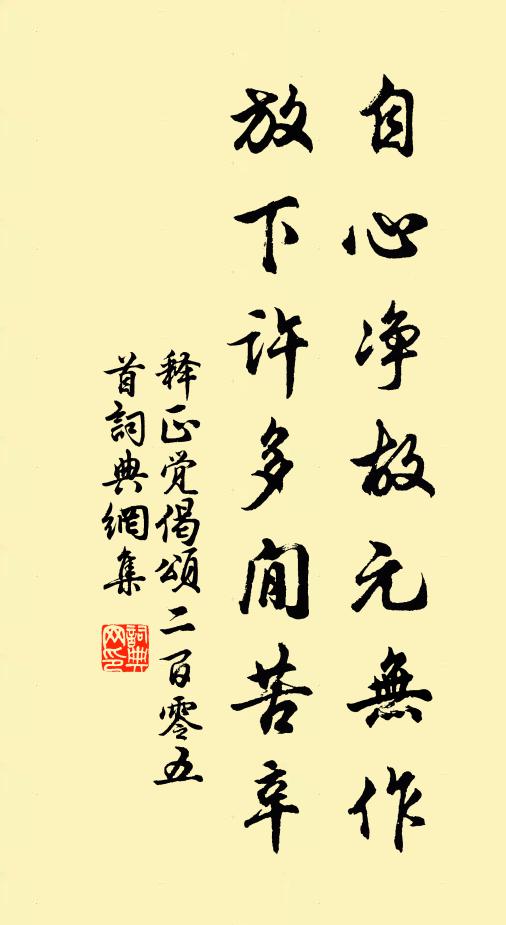 自心净故元無作
放下許多閒苦辛
释正覚偈頌二百零五
首詞典網集
詞典網印